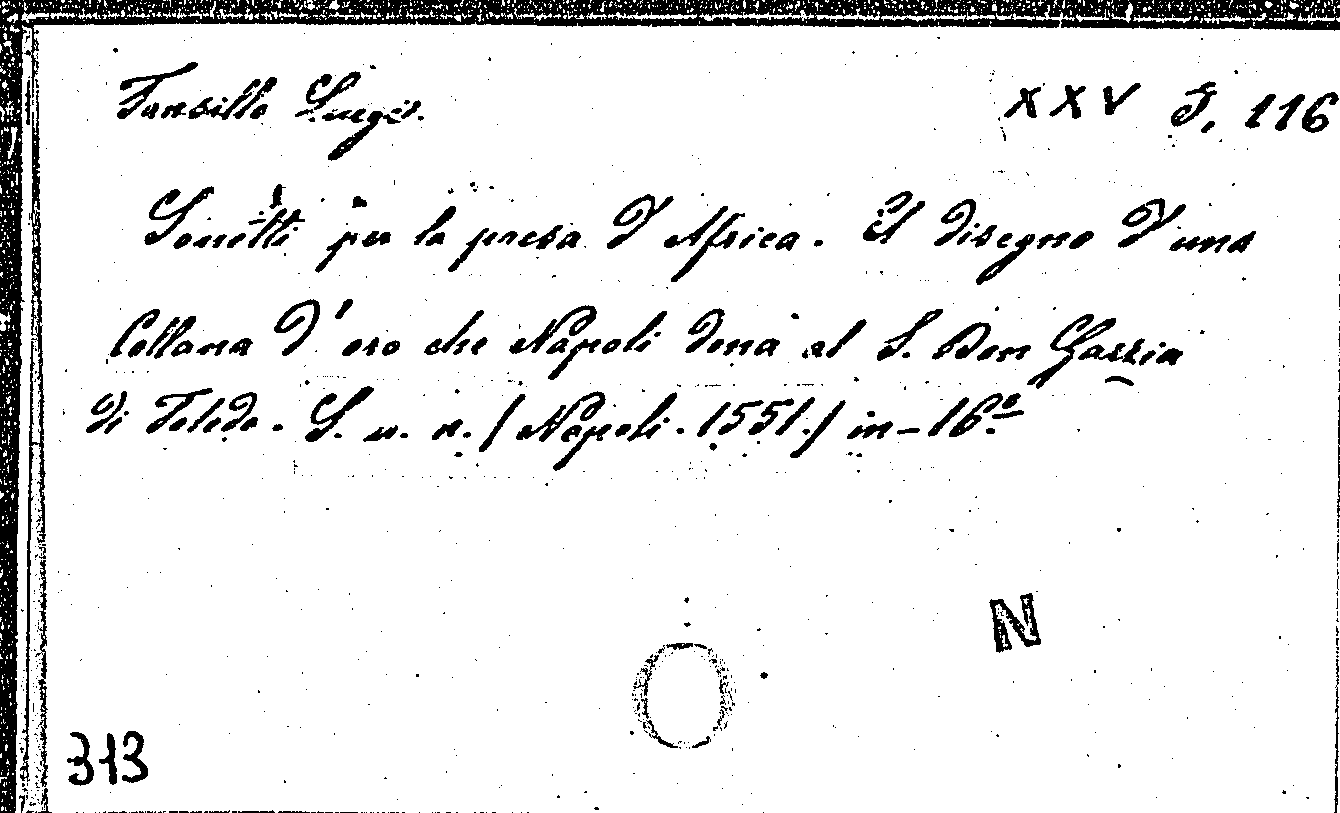 Tansillo Luigi.
XXV F, 116
Sonetti per la presa d'Africa. Et disegno d'una
Collana d'oro che Napoli dona al S. Don Garzia
di Toledo. S. u. n. / Napoli. 1551. / in-16.º
N
313